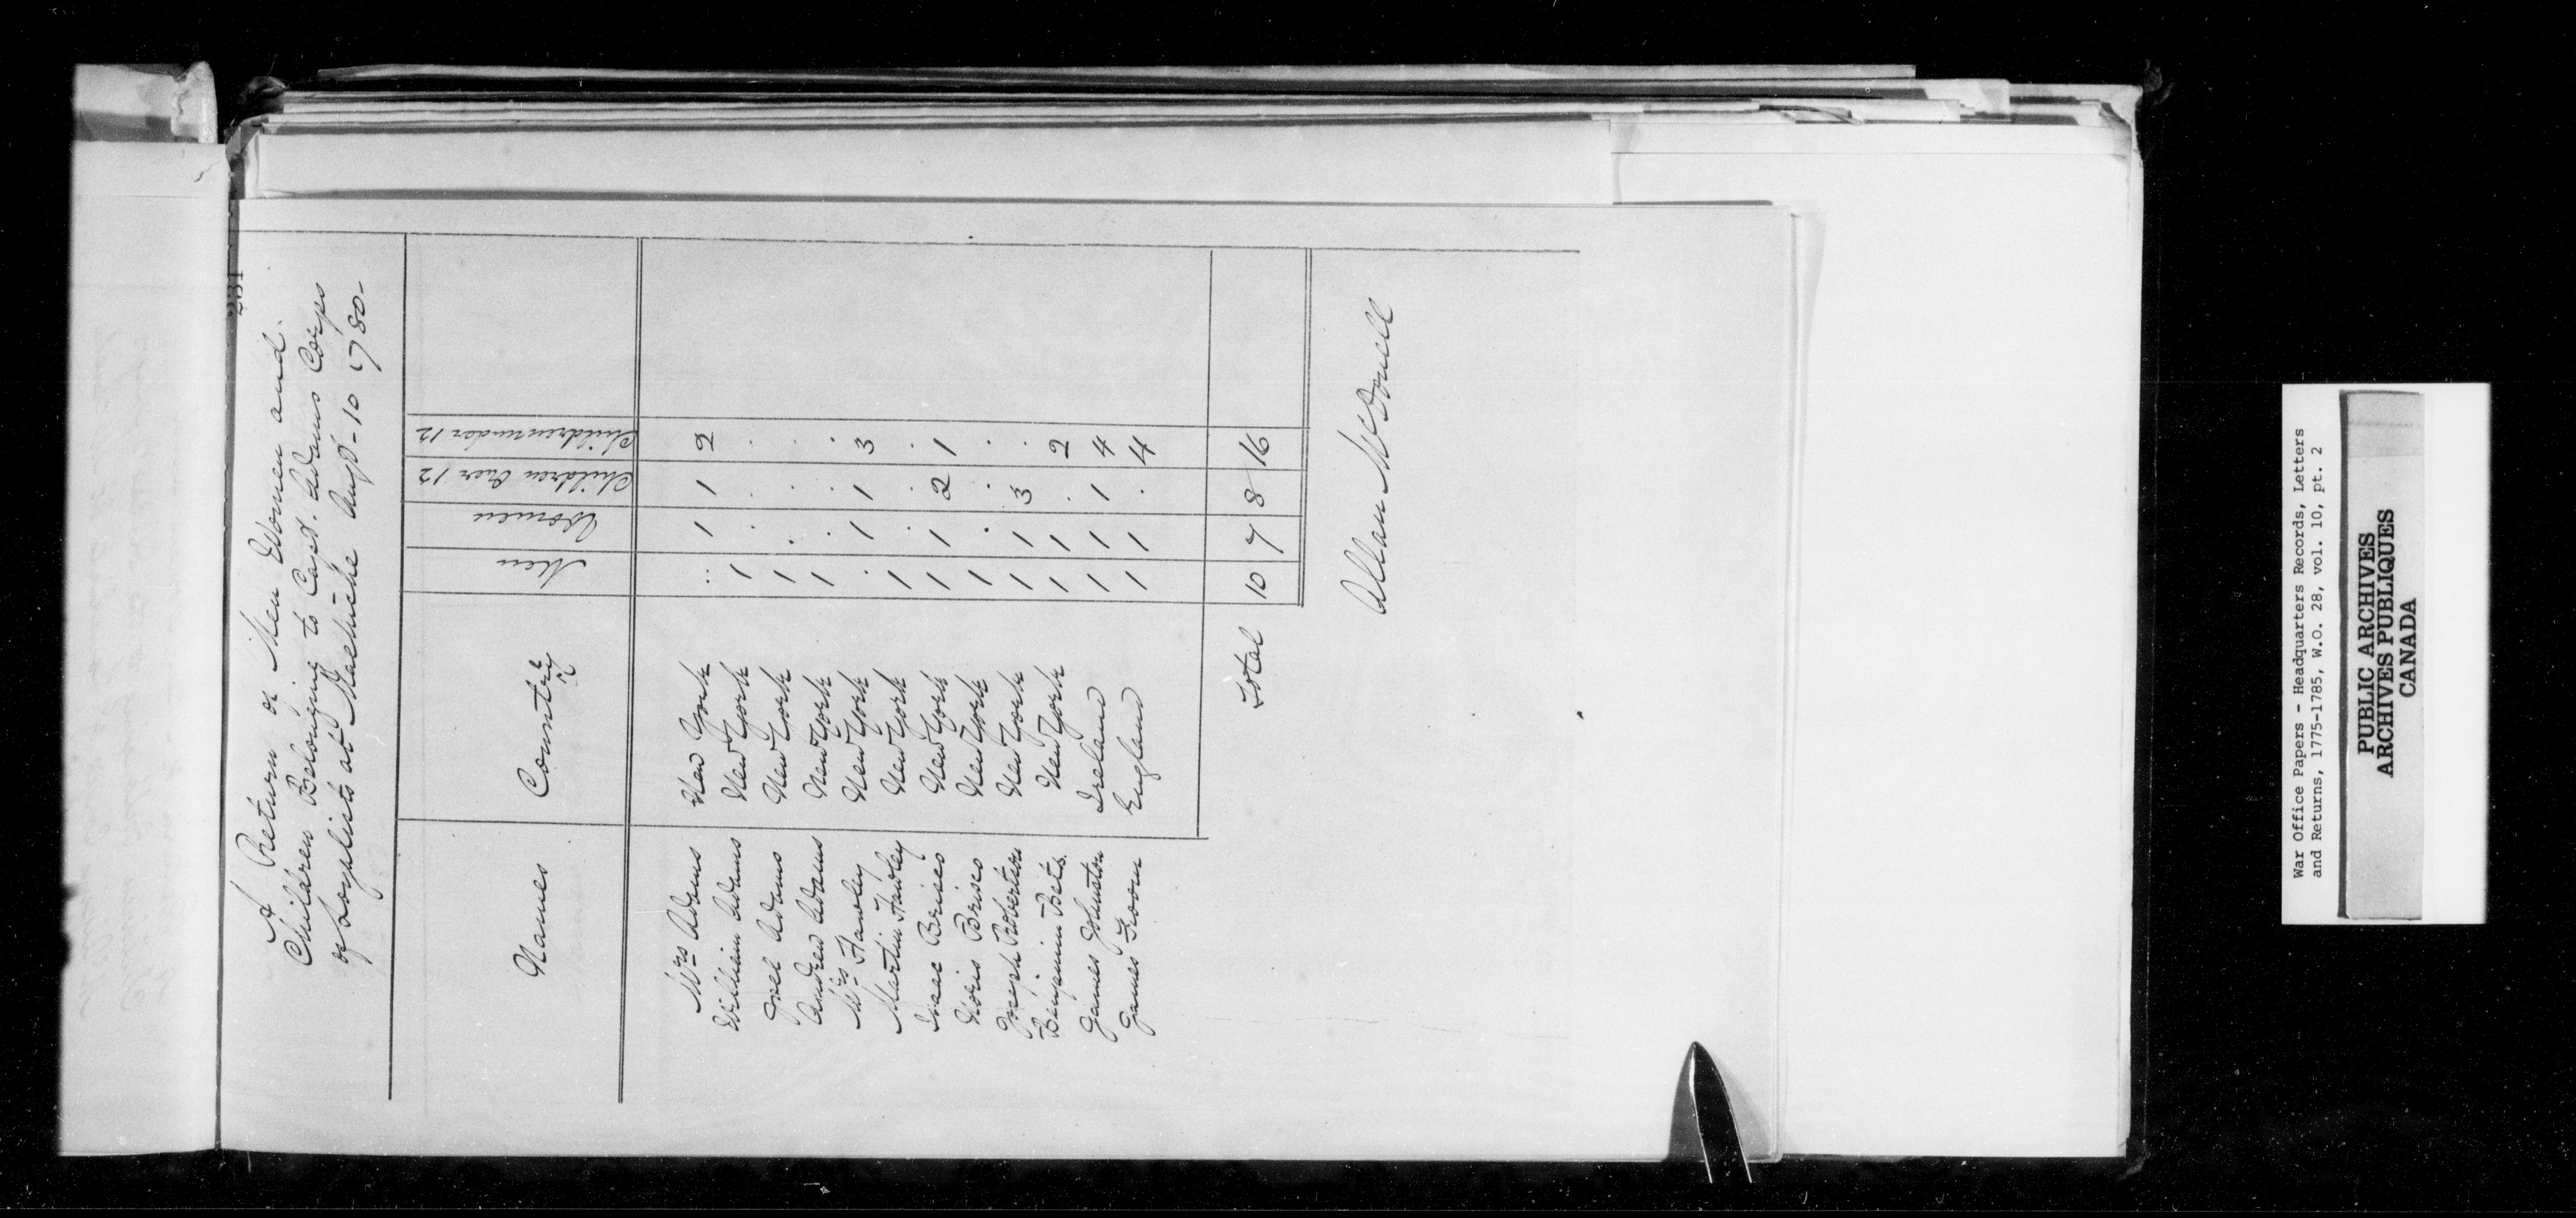 231
A Return of Men Women and
Children Belonging to Capt. Adams Corps
of Loyalists at Machiche Augt- 10 1780-
Names Country Men Women Children Over 12 Children under 12
Mrs Adams New York .. 1 1 2
William Adams New York 1 . . .
Joel Adams New York 1 . . .
Andrew Adams New York 1 . . .
Mrs Hawley New York . 1 1 3
Martin Hawley New York 1 . . .
Isaac Brisco New York 1 1 2 1
Noris Brisco New York 1 . . .
Joseph Robertson New York 1 1 3 .
Benjamin Bets. New York 1 1 . 2
James Johnston Ireland 1 1 1 4
James Froom England 1 1 . 4
Total 10 7 8 16
Allan McDonell
War Office Papers - Headquarters Records, Letters
and Returns, 1775-1785, W.O. 28, vol. 10, pt. 2
PUBLIC ARCHIVES
ARCHIVES PUBLIQUES
CANADA